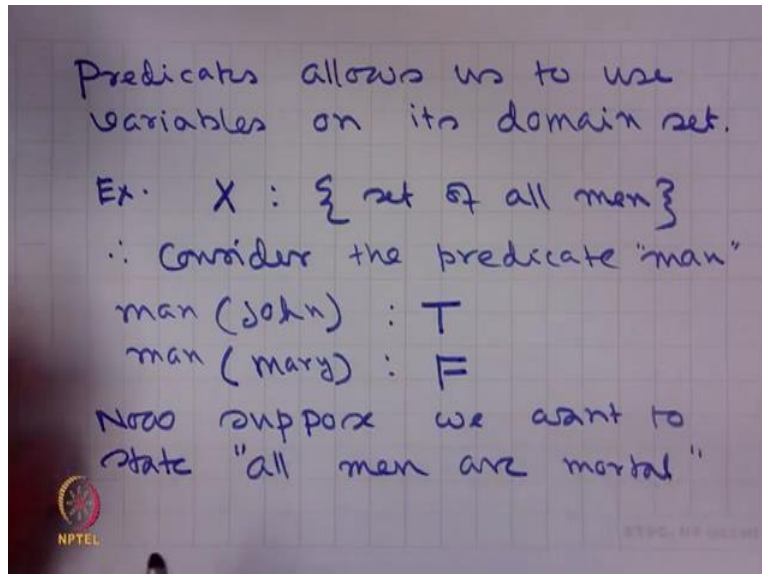 Predicates allows us to use
variables on its domain set.
Ex. X : { set of all men }
∴ Consider the predicate "man"
man (John) : T
man (mary) : F
Now suppose we want to
state "all men are mortal"
NPTEL